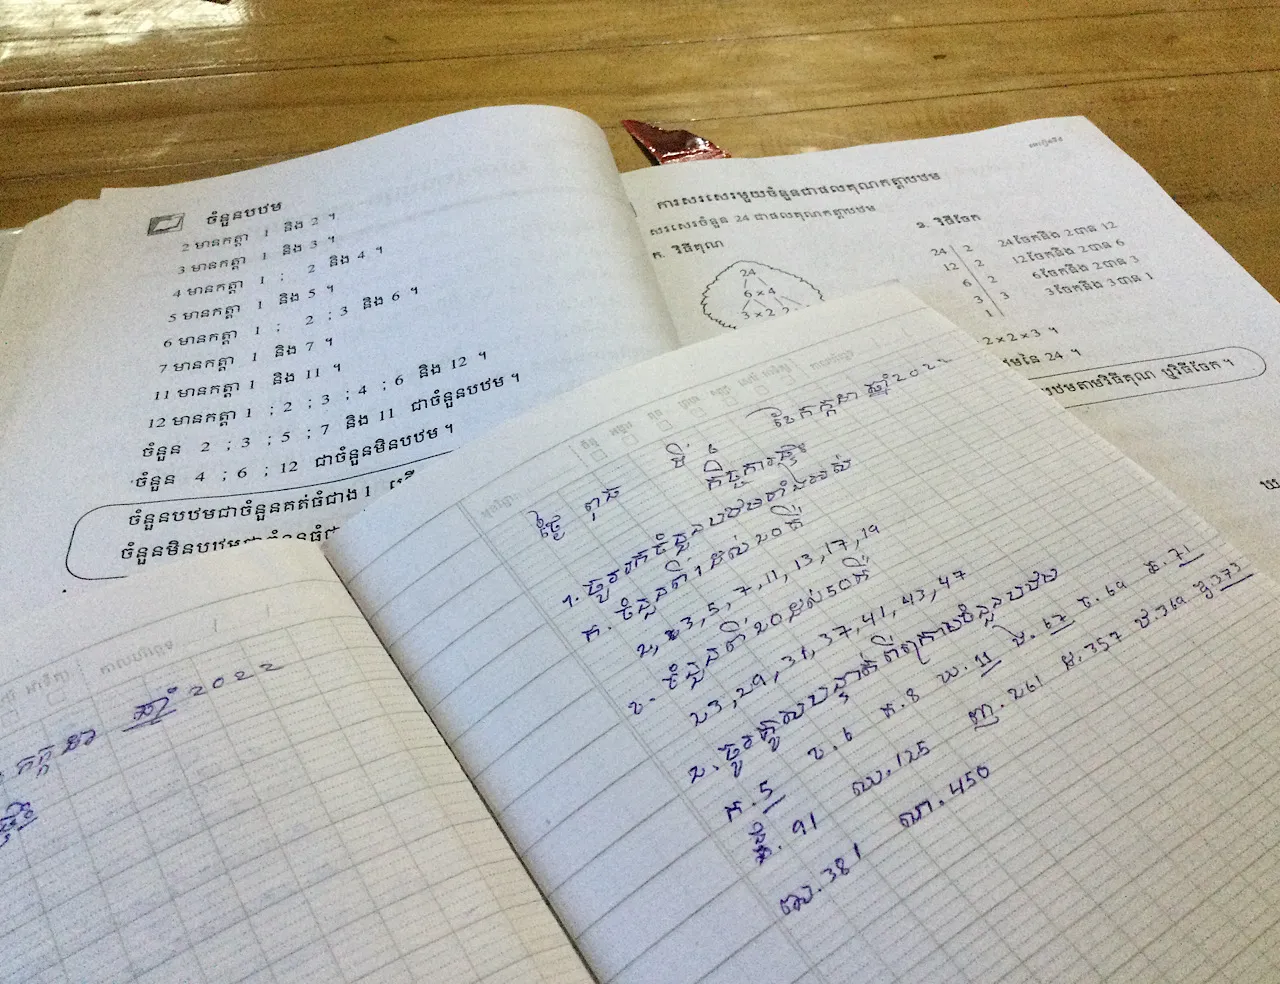 ចំនួនបឋម
2 មានកត្តា 1 និង 2 ។
3 មានកត្តា 1 និង 3 ។
4 មានកត្តា 1 ; 2 និង 4 ។
5 មានកត្តា 1 និង 5 ។
6 មានកត្តា 1 ; 2 ; 3 និង 6 ។
7 មានកត្តា 1 និង 7 ។
11 មានកត្តា 1 និង 11 ។
12 មានកត្តា 1 ; 2 ; 3 ; 4 ; 6 និង 12 ។
ចំនួន 2 ; 3 ; 5 ; 7 និង 11 ជាចំនួនបឋម ។
ចំនួន 4 ; 6 ; 12 ជាចំនួនមិនបឋម ។
ចំនួនបឋមជាចំនួនគត់ធំជាង 1
ចំនួនមិនបឋមជាចំនួនធំជា
ការសរសេរមួយចំនួនជាផលគុណកត្តាបឋម
សរសេរចំនួន 24 ជាផលគុណកត្តាបឋម
ក. វិធីគុណ
24
6 × 4
3 × 2 2
ខ. វិធីចែក
24 2 24 ចែកនឹង 2 បាន 12
12 2 12 ចែកនឹង 2 បាន 6
6 2 6 ចែកនឹង 2 បាន 3
3 3 3 ចែកនឹង 3 បាន 1
1
2 × 2 × 3 ។
នៃ 24 ។
តាមវិធីគុណ ឬវិធីចែក ។
កក្កដា ឆ្នាំ 2022
ថ្ងៃ ពុធ ទី ៦ ខែ កក្កដា ឆ្នាំ 2022
កិច្ចការផ្ទះ
១. ចូររកចំនួនបឋមទាំងអស់
ក. ចំនួនពី 1 ដល់ 20 គឺ
2, 3, 5, 7, 11, 13, 17, 19
ខ. ចំនួនពី 20 ដល់ 50 គឺ
23, 29, 31, 37, 41, 43, 47
២. ចូរគូសបន្ទាត់ពីក្រោមចំនួនបឋម
ក. 5 ខ. 6 គ. 8 ឃ. 11 ង. 67 ច. 69 ឆ. 71
ជ. 91 ឈ. 125 ញ. 261 ដ. 357 ឋ. 369 ឌ. 373
ឍ. 381 ណ. 450